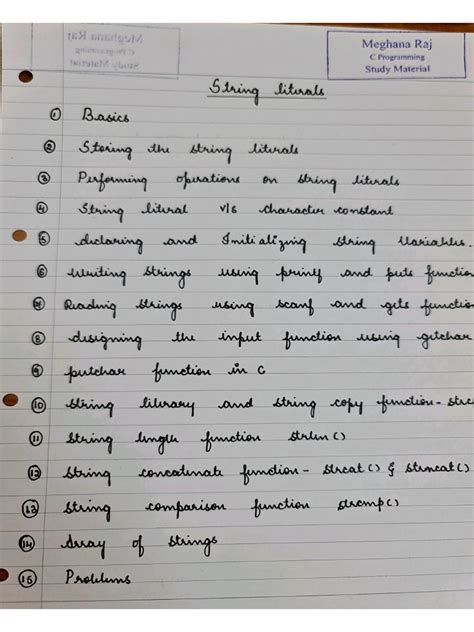 Meghana Raj
C Programming
Study Material
Meghana Raj
C Programming
Study Material
String literals
① Basics
② Storing the string literals
③ Performing operations on string literals
④ String literal v/s character constant
⑤ declaring and Initializing string Variables.
⑥ Writing strings using printf and puts function
⑦ Reading strings using scanf and gets function
⑧ designing the input function using getchar
⑨ putchar function in C
⑩ string library and string copy function - strc
⑪ String length function strlen()
⑫ String concatenate function - strcat() & strncat()
⑬ string comparison function strcmp()
⑭ Array of strings
⑮ Problems